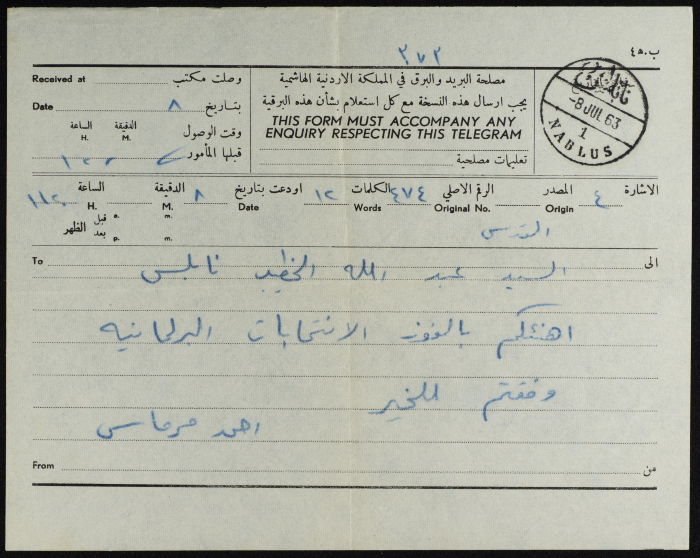 ب.ه٤
٣٧٢
Received at وصلت مكتب
Date ٨ بتاريخ
الساعة الدقيقة وقت الوصول
H. M.
قبلها المأمور
مصلحة البريد والبرق في المملكة الاردنية الهاشمية
يجب ارسال هذه النسخة مع كل استعلام بشأن هذه البرقية
THIS FORM MUST ACCOMPANY ANY
ENQUIRY RESPECTING THIS TELEGRAM
تعليمات مصلحية
نابلس
-8 JUL 63
1
NABLUS
الاشارة ٤ المصدر الرقم الاصلي ٤٧٤ الكلمات ١٢ اودعت بتاريخ ٨ الدقيقة الساعة
Origin Original No. Words Date M. H.
قبل a. m.
الظهر
بعد p. m.
القدس
To السيد عبد الله الخطيب نابلس الى
اهنئكم بالفوز الانتخابات البرلمانيه
وفقتم للخير
احمد
From من